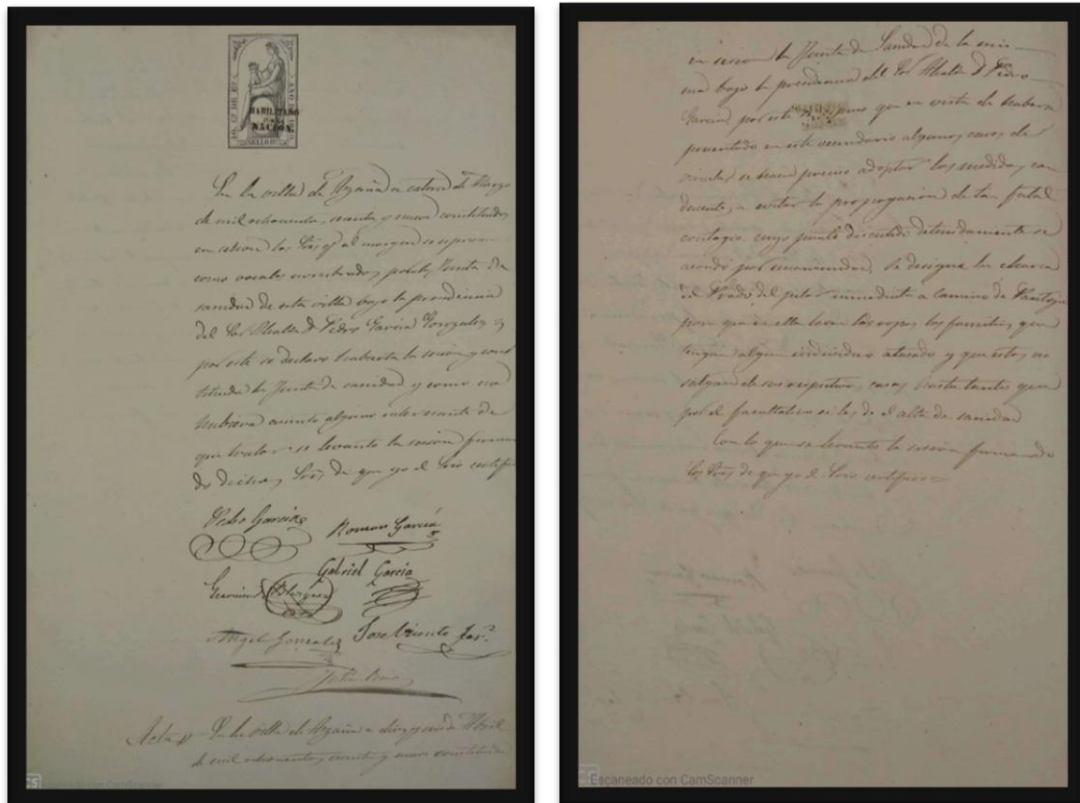 HABILITADO
POR LA
NACION.
En la villa de Azaña a catorce de Marzo
de mil ochocientos, sesenta y nueve constituidos
en sesion los Sres qe al margen se espresan
como vocales nombrados, por la Junta de
sanidad de esta villa bajo la presidencia
del Sor Alcalde D Pedro Garcia Gonzalez y
por este se declaro abierta la sesion y cons
tituida la Junta de sanidad y como no
hubiera asunto alguno interesante de
que tratar se levanto la sesion firman
do dichos Sres de que yo el Srio certifico
Pedro Garcia
Roman Garcia
Gabriel Garcia
Angel Gonzalez
Jose Vicente
Acta En la villa de Azaña a diez y seis de Abril
de mil ochocientos, sesenta y nueve constituida
en sesion la Junta de Sanidad de la mis
ma bajo la presidencia del Sor Alcalde D Pedro
Garcia, por este se que en vista de haberse
presentado en este vecindario algunos casos de
viruelas se hacia preciso adoptar las medidas con
ducentes a evitar la propagacion de tan fatal
contagio cuyo punto discutido detenidamente se
acordó por unanimidad, se designe la charca
del Prado del pilar inmediata a camino de Pantoja
para que en ella laven las ropas las familias que
tengan algun individuo atacado y que estos no
salgan de sus respectivas casas hasta tanto que
por el facultativo se les de el alta de sanidad
Con lo que se levanto la sesion firmando
los Sres de que yo el Srio certifico=
Escaneado con CamScanner